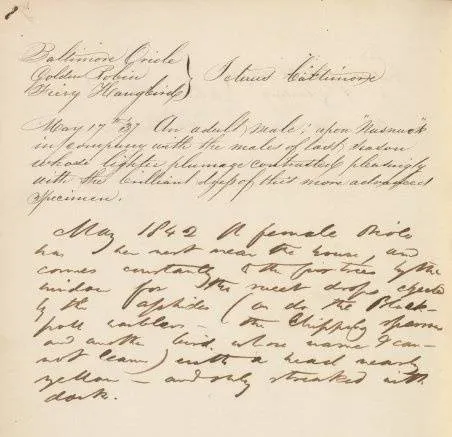 Baltimore Oriole
Golden Robin
Fiery Hangbird
Icterus Baltimore
May 17th '37 An adult male; upon "Nasnuck"
in company with the males of last season
whose lighter plumage contrasted pleasingly
with the brilliant dress of this more advanced
specimen.
May 1842 A female Oriole
has her nest near the house, and
comes constantly to the by the
window for the sweet drops ejected
by the aphides (as do the Black-
poll warblers - the Chipping sparrow
and another bird, whose name I can-
not learn) with a head nearly
yellow - and only streaked with
dark.